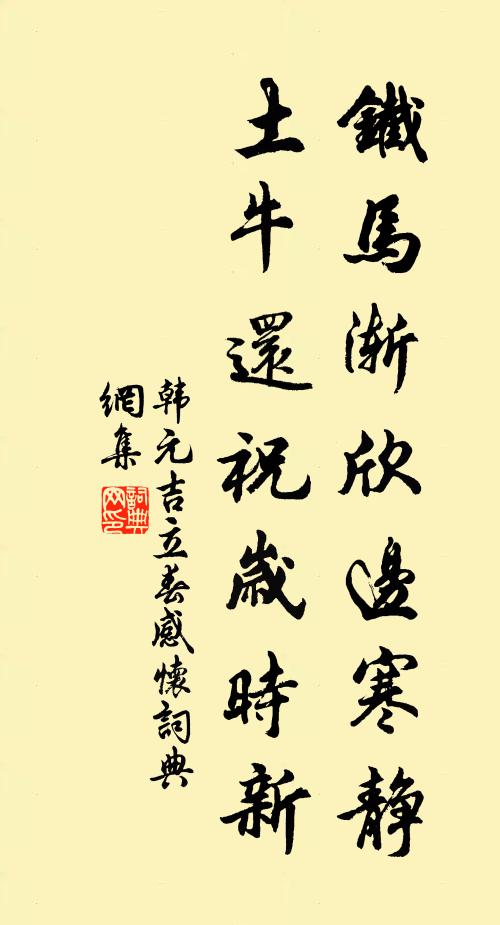 鐵馬漸欣邊寒静
土牛還祝歲時新
韩元吉立春感懷詞典
網集
詞典
网印